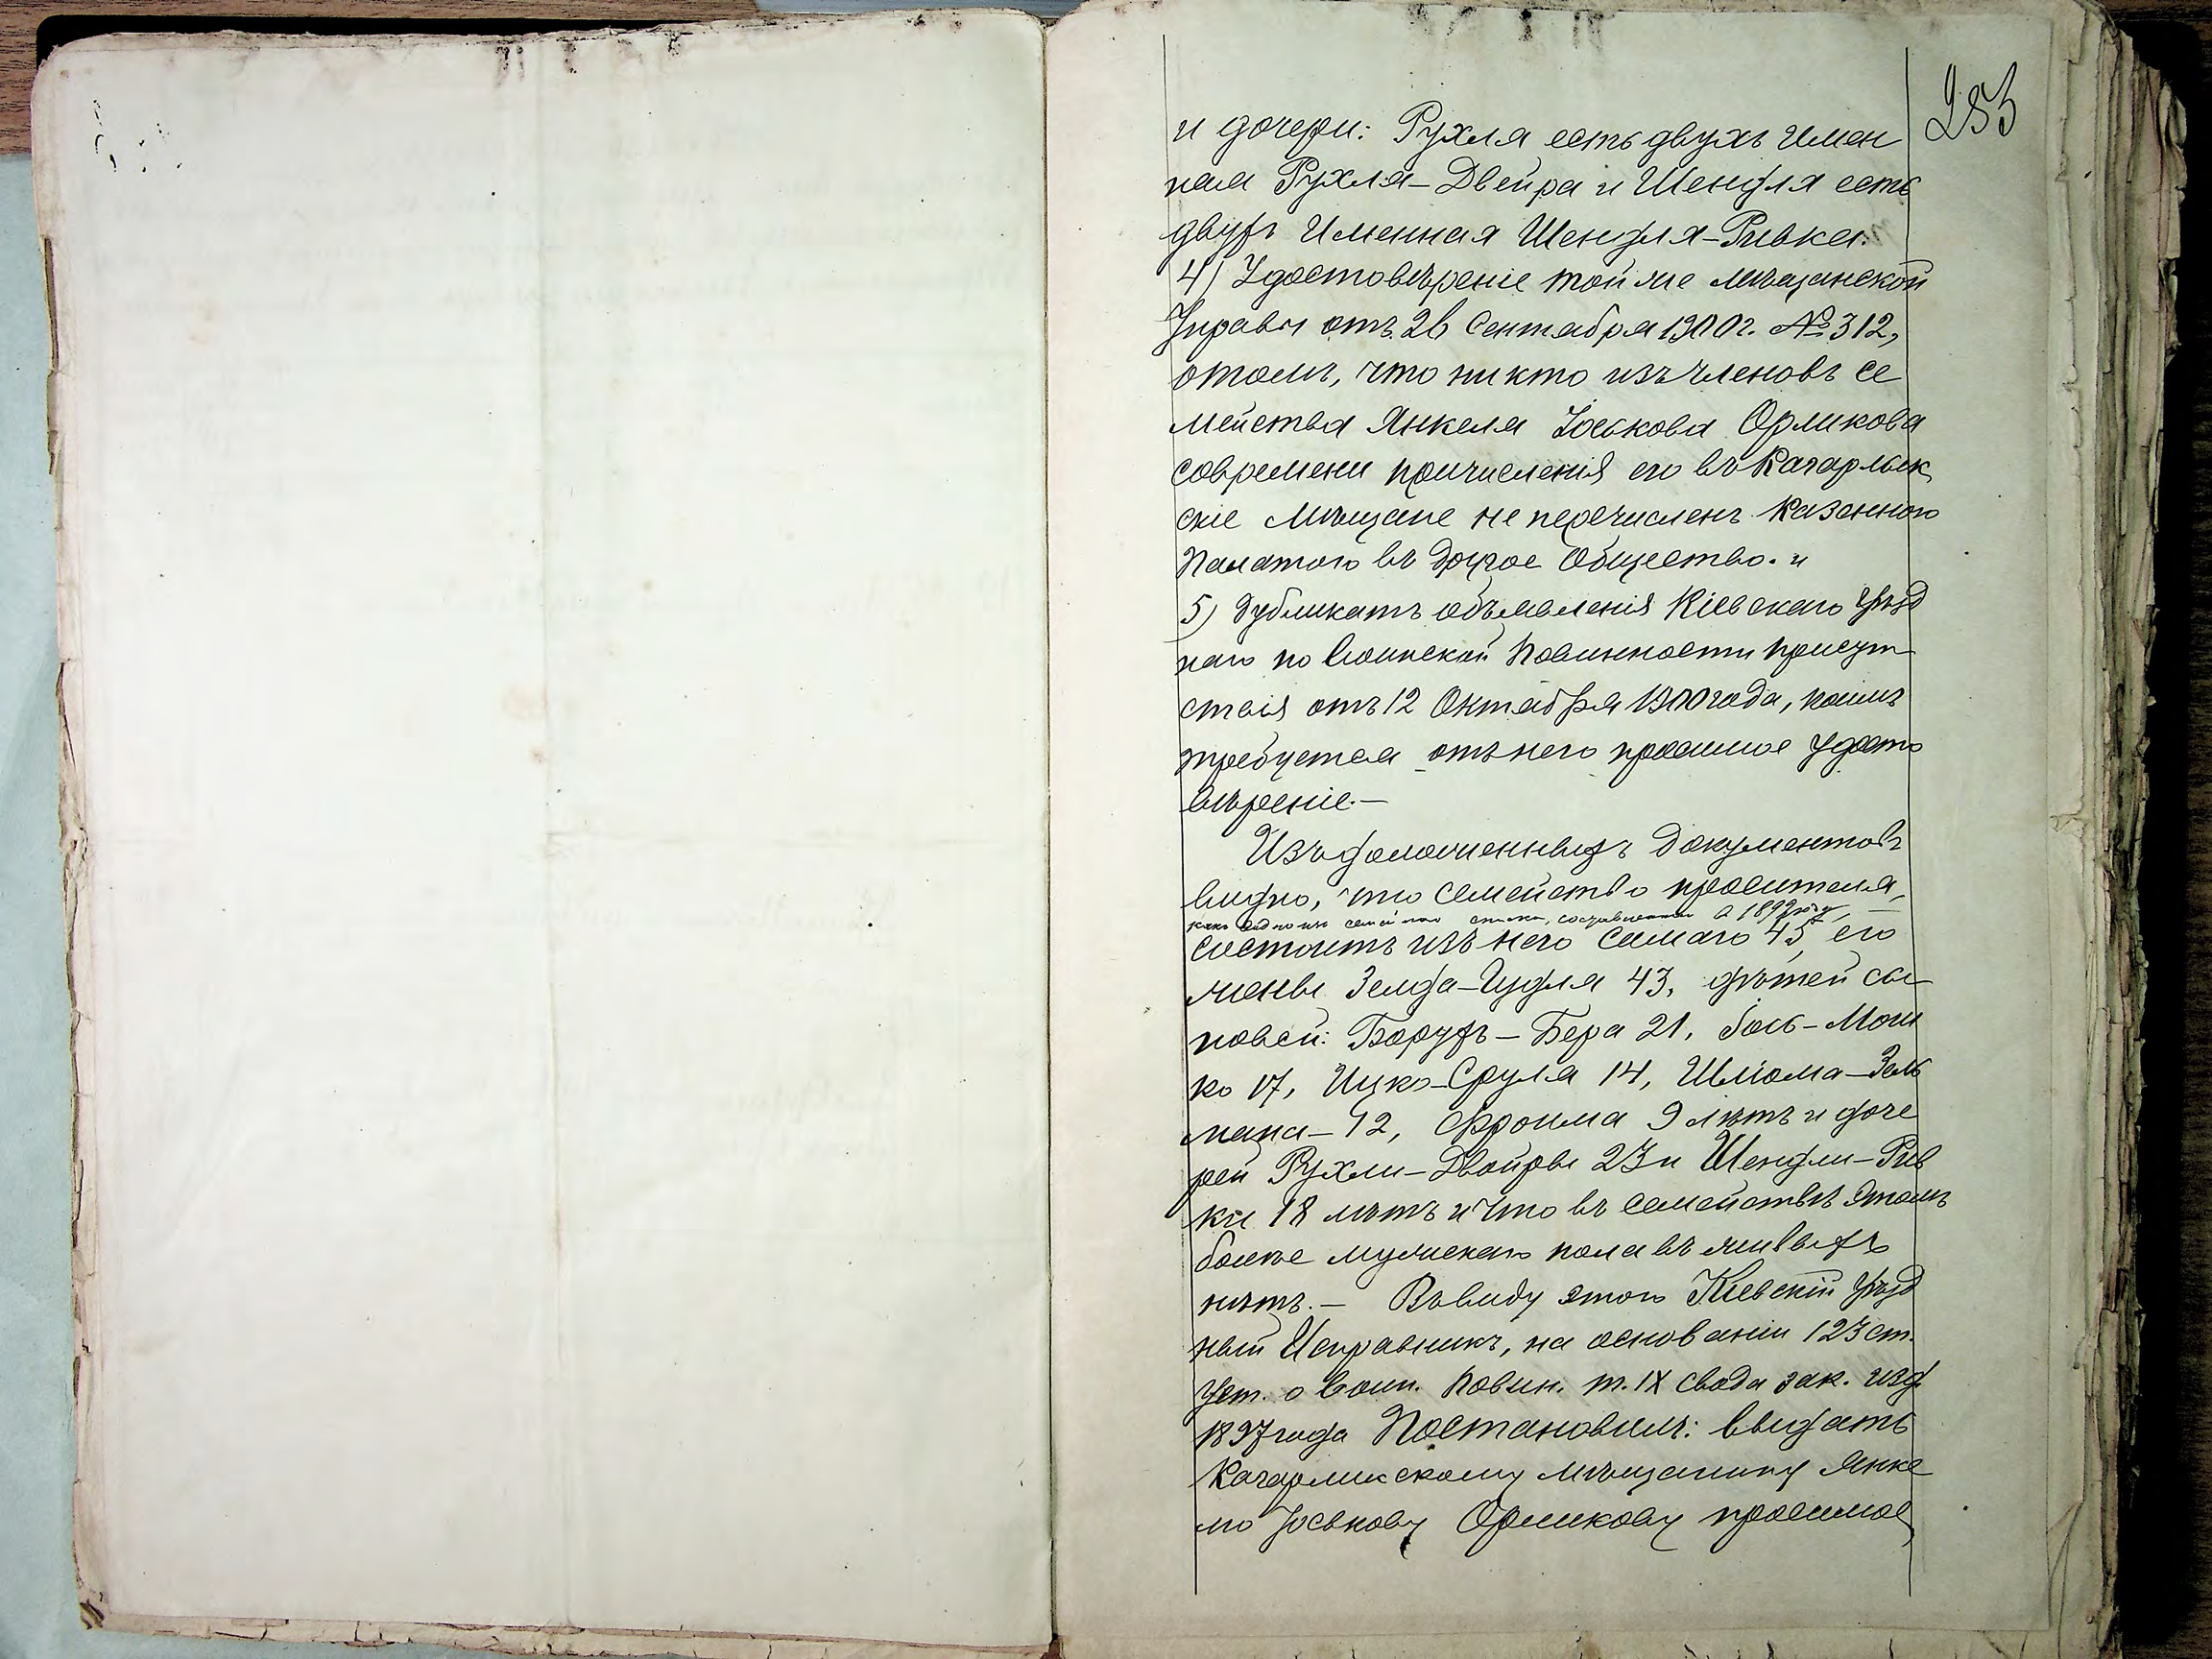 253
и дочери: Рухля есть двухъ имен
ная Рухля-Двейра и Шендля есть
двухъ именная Шендля-Ривка.
4) Удостовѣреніе той же мѣщанской
Управы отъ 26 Сентября 1900 г. № 312,
отомъ, что никто изъ членовъ се
мейства Янкеля Іоськова Орликова
современи причисленія его въ Кагарлык
скіе Мѣщане не перечисленъ Казенною
Палатою въ другое Общество. и
5) Дубликатъ объявленія Кіевскаго Уѣзд
наго по воинской Повинности присут
ствія отъ 12 Октября 1900 года, коимъ
требуется отъ него просимое удосто
вѣреніе.—
Изъ доложенныхъ документовъ
видно, что семейство просителя,
какъ видно изъ семейнаго списка, составленнаго в 1892 году,
состоитъ изъ него самаго 45, его
жены Зелда-Гудля 43, дѣтей сы
новей: Борухъ-Бера 21, Іось-Мош
ко 17, Ицко-Сруля 14, Шліома-Зель
мана-12, Фроима 9 лѣтъ и доче
рей Рухли-Двойры 23 и Шендли-Рив
ки 18 лѣтъ и что въ семействѣ этомъ
болѣе мужскаго пола въ живыхъ
нѣтъ.— Въ виду этого Кіевскій Уѣзд
ный Исправникъ, на основаніи 123 ст.
Уст. о воин. повин. т. IX свода зак. изд.
1897 года Постановилъ: выдать
Кагарликскому мѣщанину Янке
лю Іоськову Орликову просимое